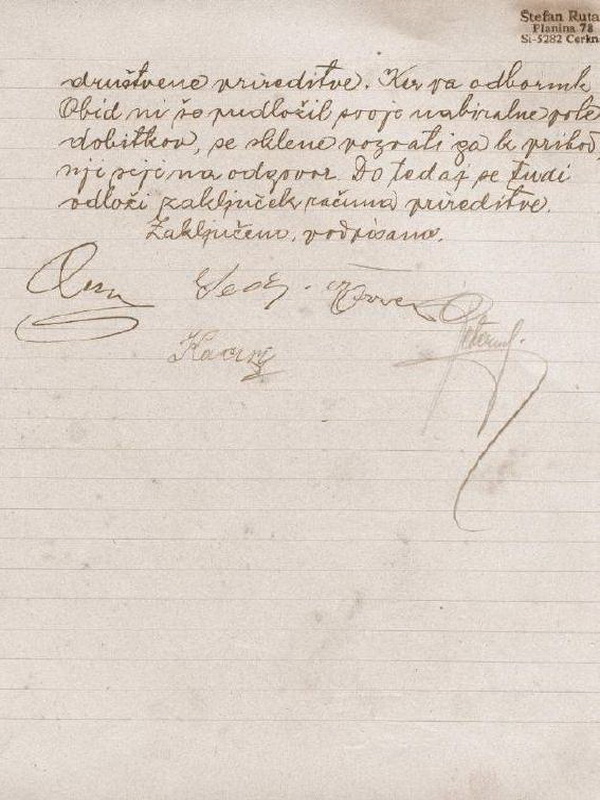 Štefan Ruta
Planina 78
SI-5282 Cerkn
društvene prireditve. Ker pa odbornik
Obid ni še predložil svoje nabiralne pole
dobitkov, se sklene pozvati ga k prihod
nji seji na odgovor. Do tedaj se tudi
odloži zaključek računa prireditve.
Zaključeno, podpisano.
Kacin